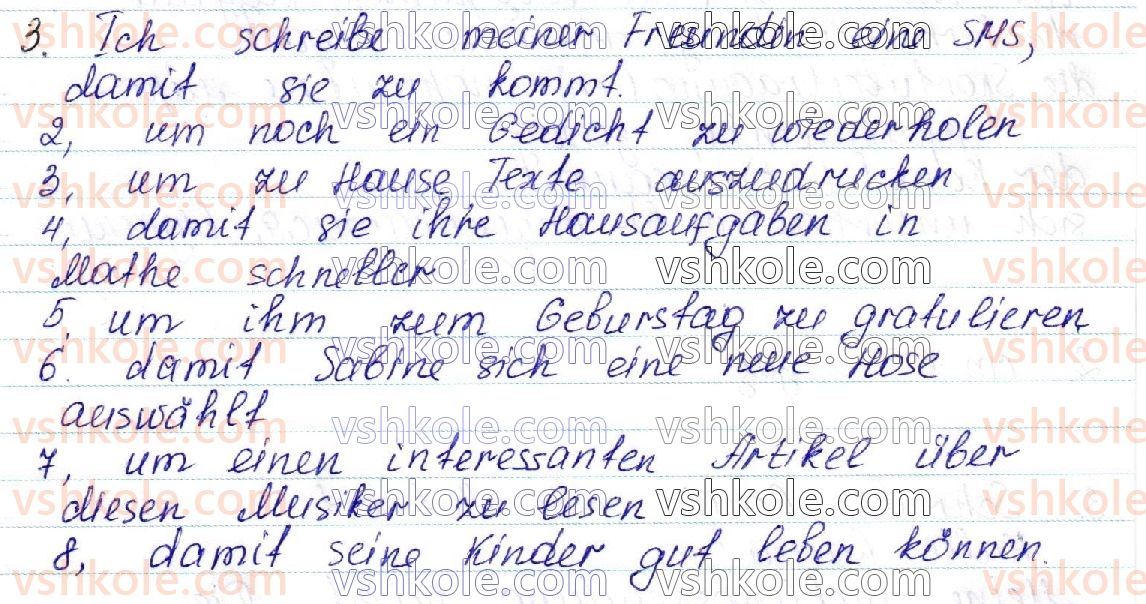 3. Ich schreibe meiner Freundin eine SMS,
damit sie zu kommt.
2, um noch ein Gedicht zu wiederholen
3, um zu Hause Texte auszudrucken
4, damit sie ihre Hausaufgaben in
Mathe schneller
5, um ihm zum Geburstag zu gratulieren
6. damit Sabine sich eine neue Hose
auswählt
7, um einen interessanten Artikel über
diesen Musiker zu lesen
8, damit seine Kinder gut leben können.